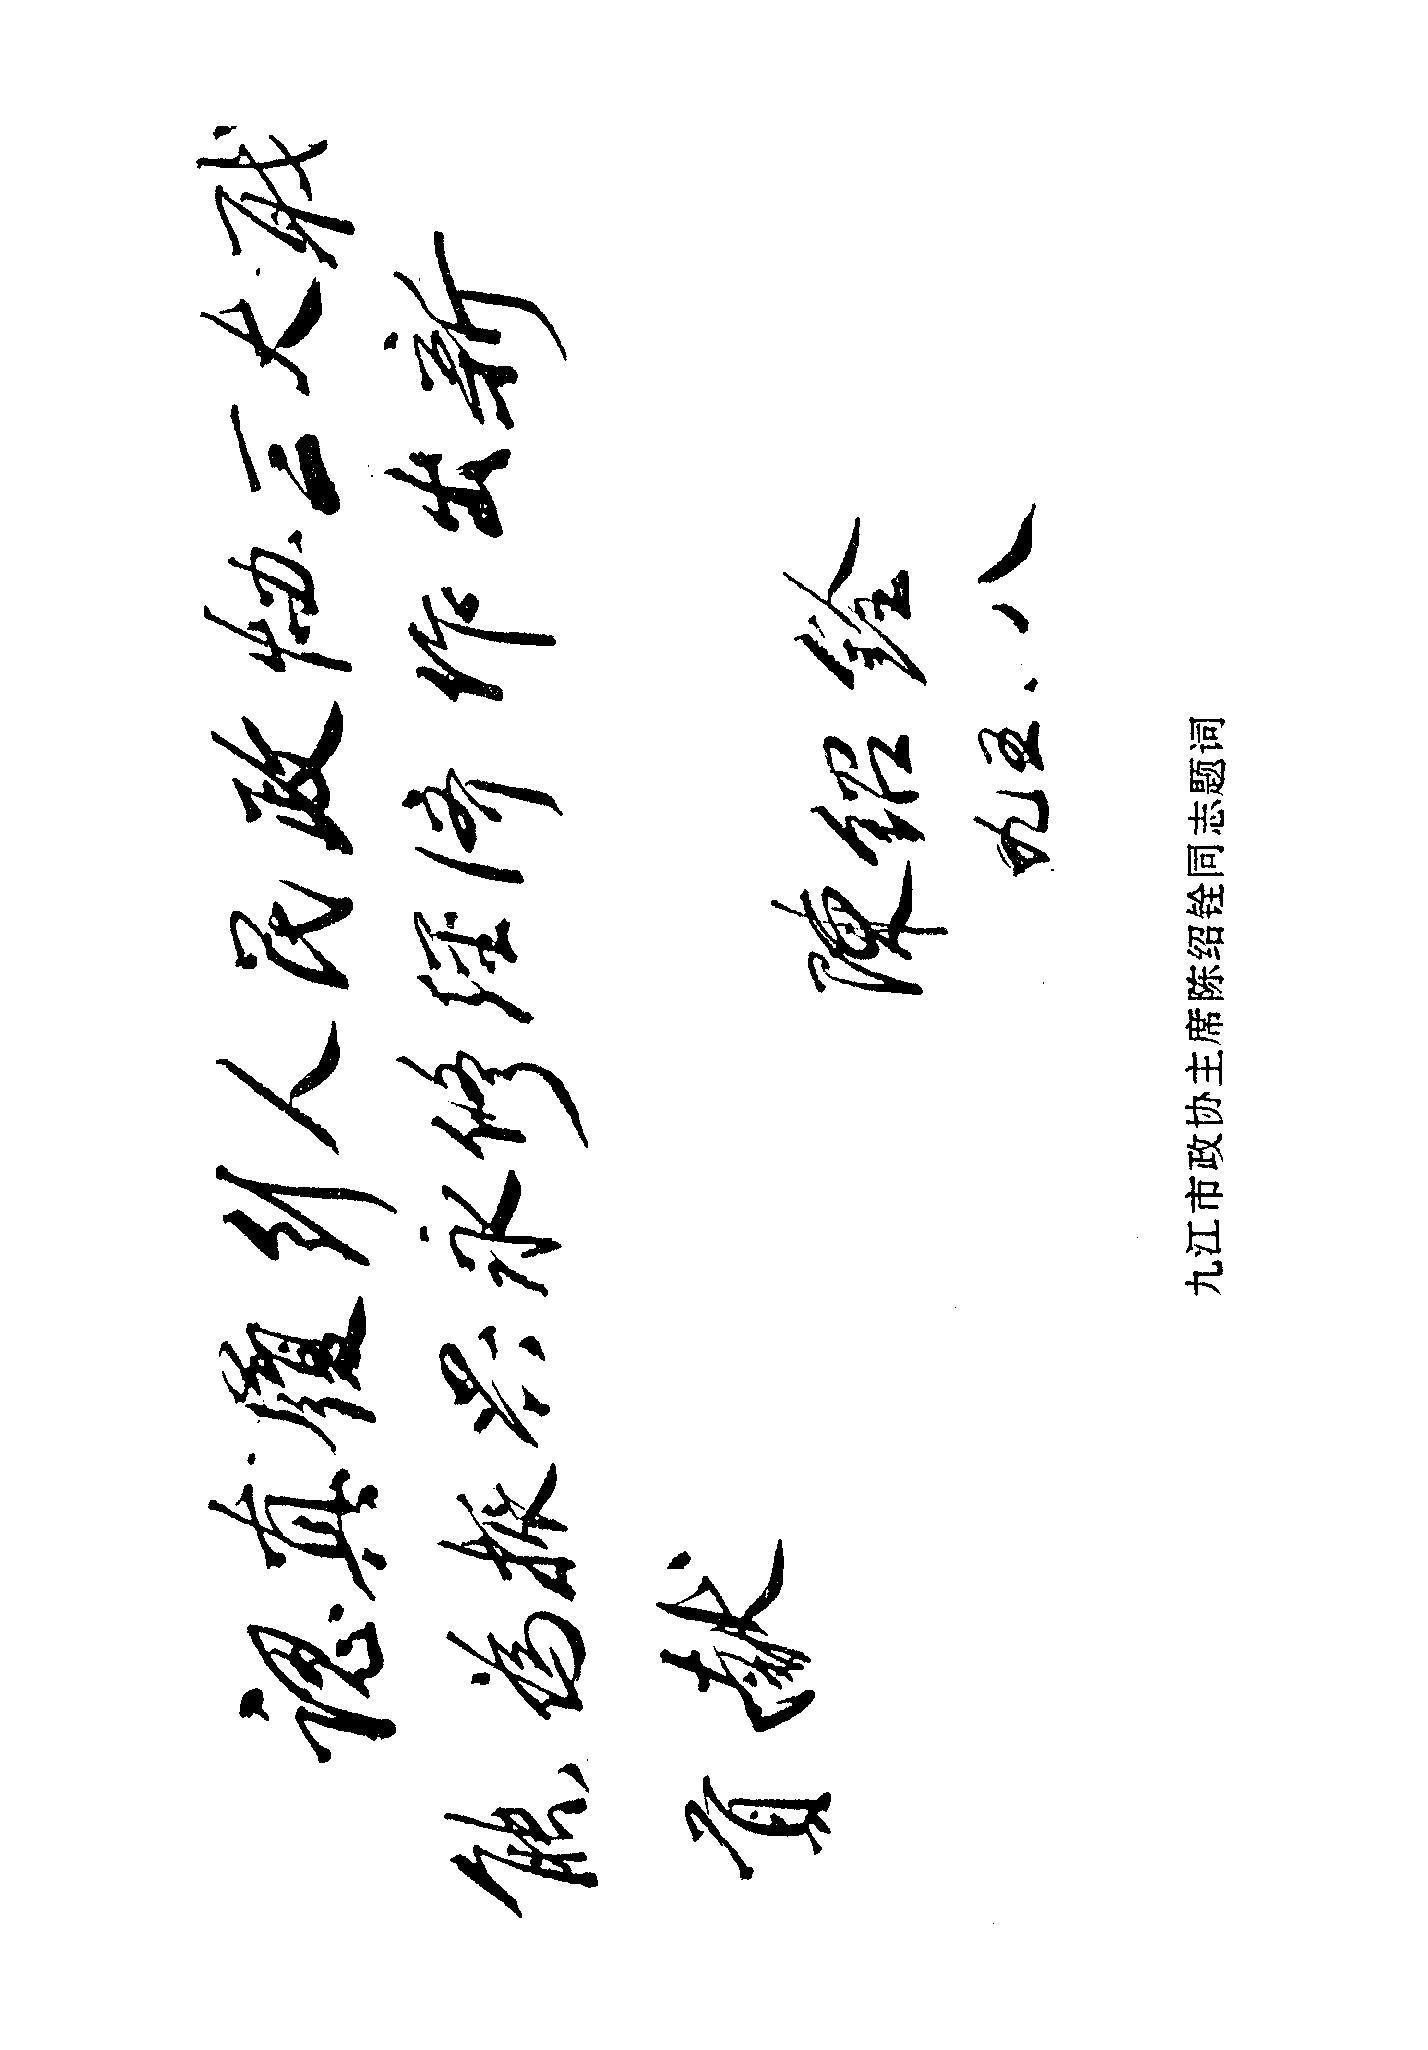 认真履行人民政协三大职
能、为振兴永修经济作出新
贡献
陳绍铨
九五、八
九江市政协主席陈绍铨同志题词